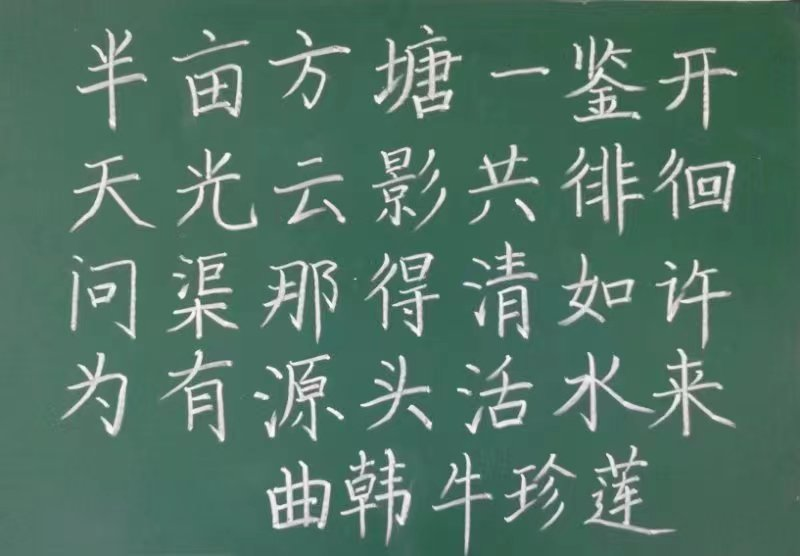 半亩方塘一鉴开
天光云影共徘徊
问渠那得清如许
为有源头活水来
曲韩牛珍莲